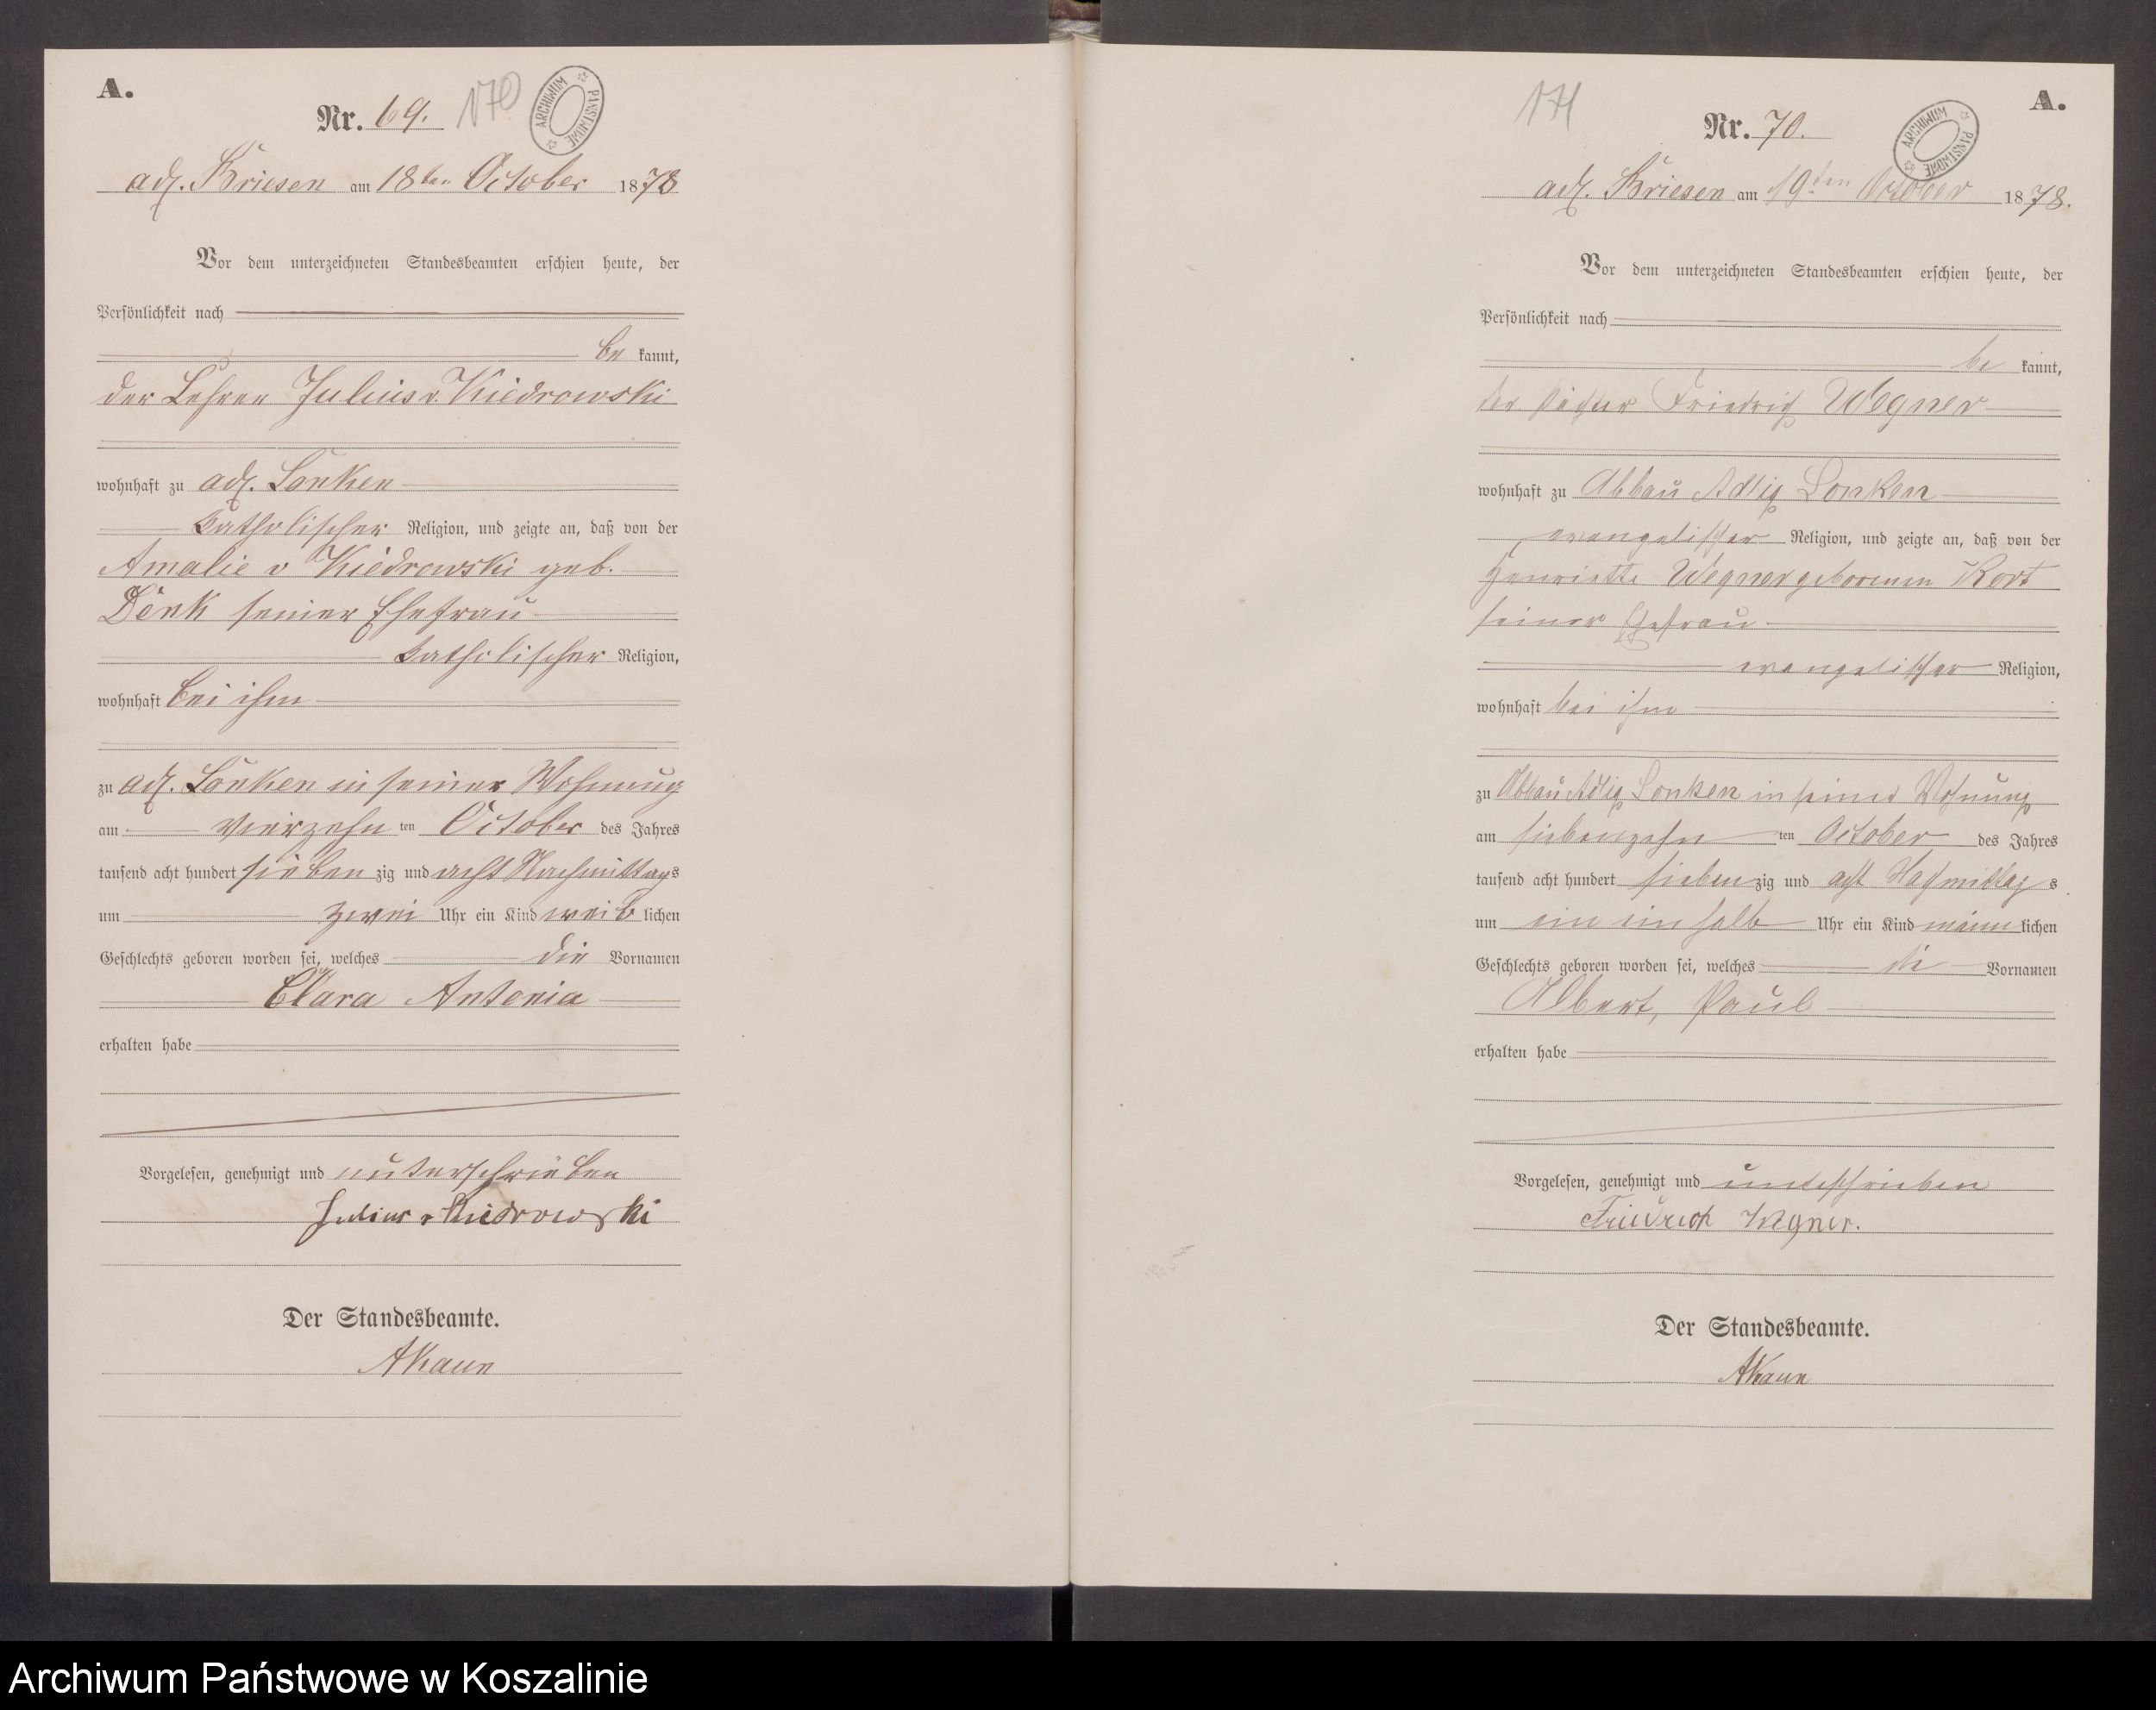 A.
Nr. 69.
170
ARCHIWUM PAŃSTWOWE
adl. Briesen am 18ten October 1878
Vor dem unterzeichneten Standesbeamten erschien heute, der
Persönlichkeit nach
be kannt,
der Lehrer Julius v. Kiedrowski
wohnhaft zu adl. Lonken
katholischer Religion, und zeigte an, daß von der
Amalie v Kiedrowski geb.
Denk seiner Ehefrau
katholischer Religion,
wohnhaft bei ihm
zu adl. Lonken in seiner Wohnung
am vierzehn ten October des Jahres
tausend acht hundert sieben zig und acht Nachmittags
um zwei Uhr ein Kind weib lichen
Geschlechts geboren worden sei, welches die Vornamen
Clara Antonia
erhalten habe
Vorgelesen, genehmigt und unterschrieben
Julius v Kiedrowski
Der Standesbeamte.
AKaun
A.
171
Nr. 70.
ARCHIWUM PAŃSTWOWE
adl. Briesen am 19ten October 1878.
Vor dem unterzeichneten Standesbeamten erschien heute, der
Persönlichkeit nach
be kannt,
der Pächter Friedrich Wegner
wohnhaft zu Abbau Adlig Lonken
evangelischer Religion, und zeigte an, daß von der
Henriette Wegner geborenen Kort
seiner Ehefrau
evangelischer Religion,
wohnhaft bei ihm
zu Abbau Adlig Lonken in seiner Wohnung
am siebenzehn ten October des Jahres
tausend acht hundert sieben zig und acht Nachmittag s
um ein ein halb Uhr ein Kind männ lichen
Geschlechts geboren worden sei, welches die Vornamen
Albert, Paul
erhalten habe
Vorgelesen, genehmigt und unterschrieben
Friedrich Wegner.
Der Standesbeamte.
AKaun
Archiwum Państwowe w Koszalinie